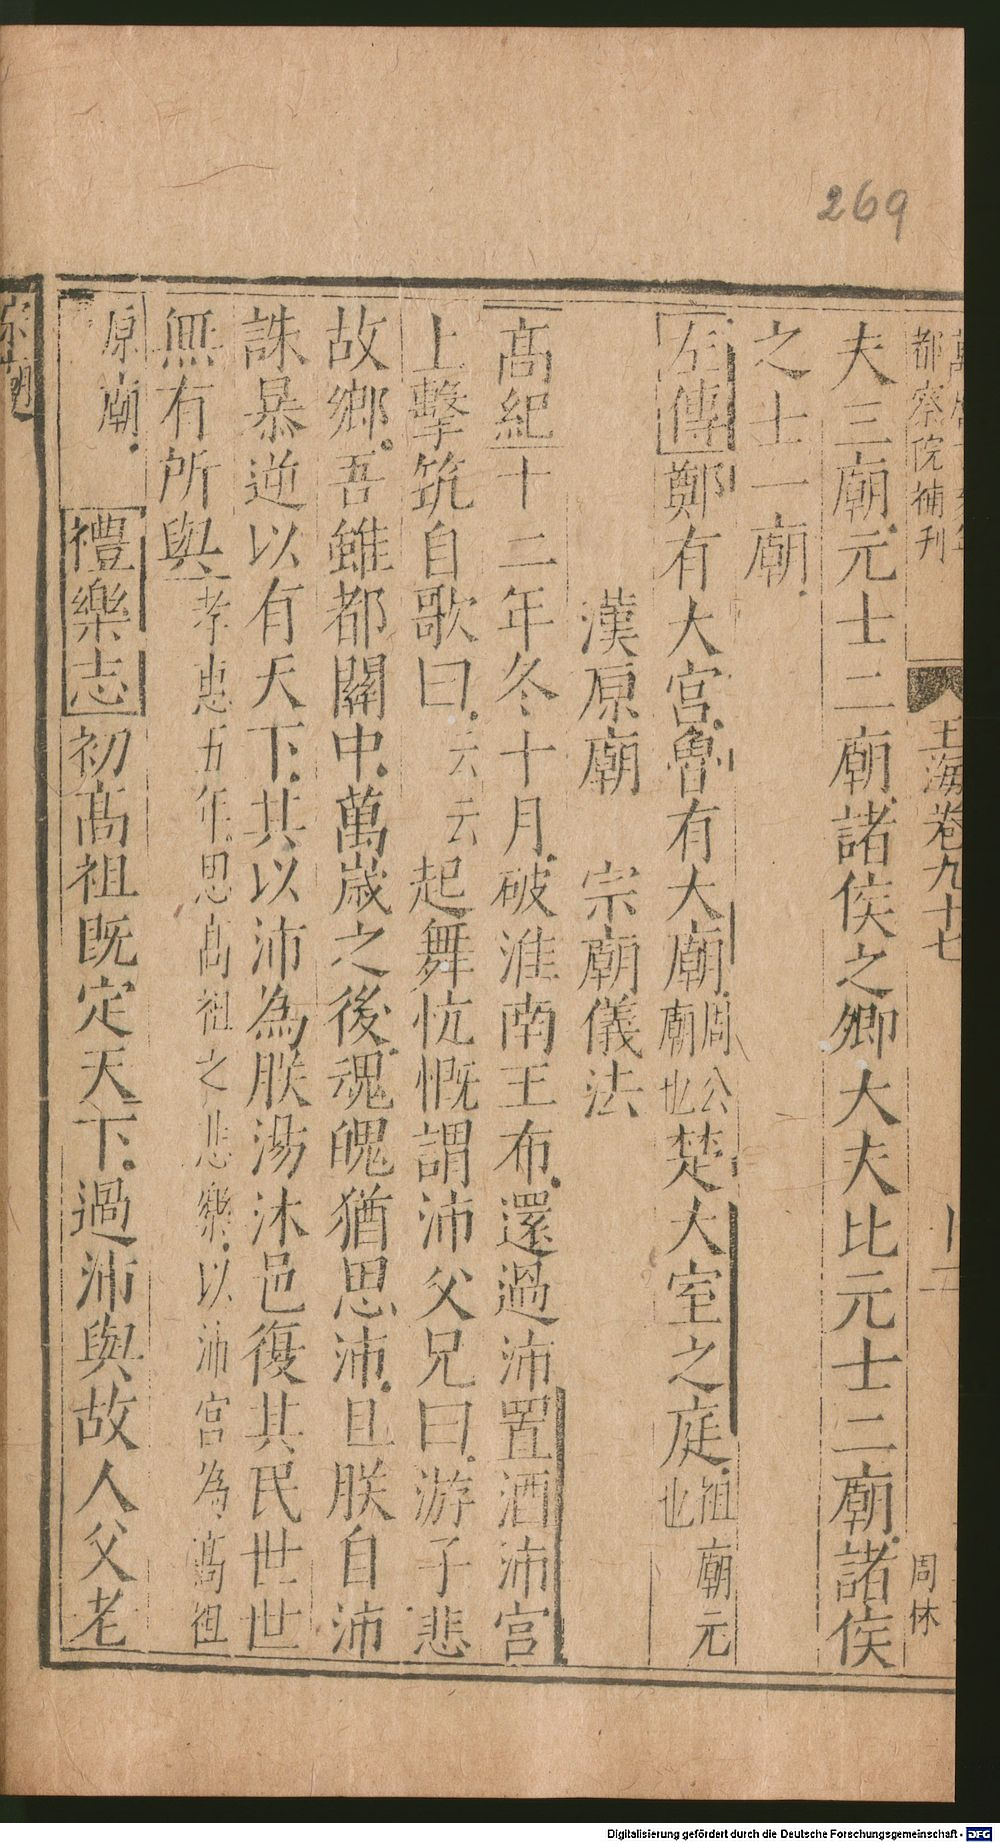 269
都察院補刊
玉海卷九十七
周休
夫三廟元士二廟諸侯之卿大夫比元士二廟諸侯
之士一廟
左傳鄭有大宮魯有大廟周公廟也楚大室之庭祖廟元也
漢原廟 宗廟儀法
高紀十二年冬十月破淮南王布還過沛置酒沛宮
上擊筑自歌曰云云起舞忼慨謂沛父兄曰游子悲
故鄉吾雖都關中萬歲之後魂魄猶思沛且朕自沛
誅暴逆以有天下其以沛為朕湯沐邑復其民世世
無有所與孝惠五年思高祖之悲樂以沛宮為高祖
原廟禮樂志初高祖既定天下過沛與故人父老
Digitalisierung gefördert durch die Deutsche Forschungsgemeinschaft - DFG